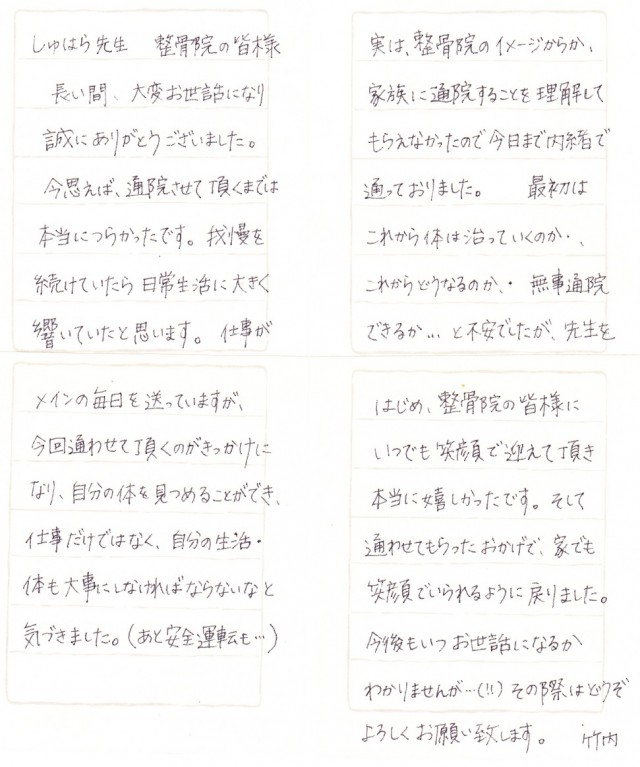 しゅはら先生　整骨院の皆様
長い間、大変お世話になり
誠にありがとうございました。
今思えば、通院させて頂くまでは
本当につらかったです。我慢を
続けていたら日常生活に大きく
響いていたと思います。仕事が
メインの毎日を送っていますが、
今回通わせて頂くのがきっかけに
なり、自分の体を見つめることができ、
仕事だけではなく、自分の生活・
体も大事にしなければならないなと
気づきました。(あと安全運転も…)
実は、整骨院のイメージからか、
家族に通院することを理解して
もらえなかったので今日まで内緒で
通っておりました。　最初は
これから体は治っていくのか・、
これからどうなるのか、・無事通院
できるか…と不安でしたが、先生を
はじめ、整骨院の皆様に
いつでも笑顔で迎えて頂き
本当に嬉しかったです。そして
通わせてもらったおかげで、家でも
笑顔でいられるように戻りました。
今後もいつお世話になるか
わかりませんが…(!!)その際はどうぞ
よろしくお願い致します。　竹内